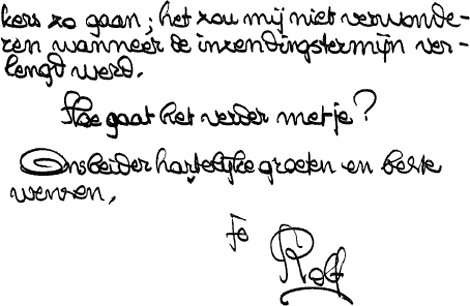 kers zo gaan; het zou mij niet verwonde-
ren wanneer de inzendingstermijn ver-
lengd werd.
Hoe gaat het verder met je?
Ons beider hartelijke groeten en beste
wensen,
Je
Rolf